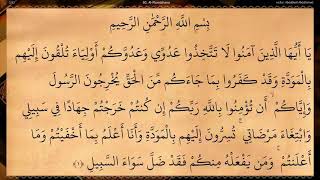 60. Al-Mumtahana
بِسْمِ اللَّهِ الرَّحْمَٰنِ الرَّحِيمِ
يَا أَيُّهَا الَّذِينَ آمَنُوا لَا تَتَّخِذُوا عَدُوِّي وَعَدُوَّكُمْ أَوْلِيَاءَ تُلْقُونَ إِلَيْهِم
بِالْمَوَدَّةِ وَقَدْ كَفَرُوا بِمَا جَاءَكُم مِّنَ الْحَقِّ يُخْرِجُونَ الرَّسُولَ
وَإِيَّاكُمْ ۙ أَن تُؤْمِنُوا بِاللَّهِ رَبِّكُمْ إِن كُنتُمْ خَرَجْتُمْ جِهَادًا فِي سَبِيلِي
وَابْتِغَاءَ مَرْضَاتِي ۚ تُسِرُّونَ إِلَيْهِم بِالْمَوَدَّةِ وَأَنَا أَعْلَمُ بِمَا أَخْفَيْتُمْ وَمَا
أَعْلَنتُمْ ۚ وَمَن يَفْعَلْهُ مِنكُمْ فَقَدْ ضَلَّ سَوَاءَ السَّبِيلِ ﴿١﴾